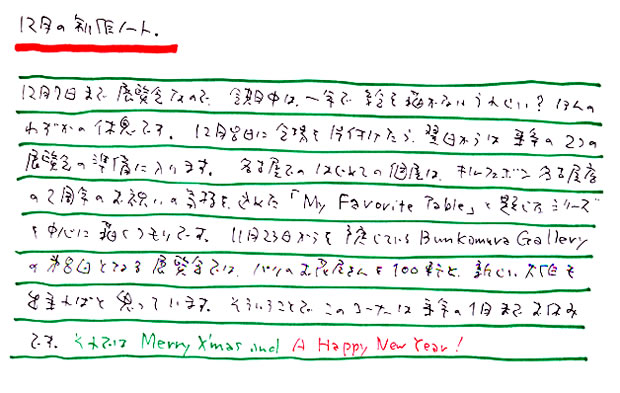 12月の制作ノート。
12月7日まで展覧会なので、会期中は、一年で絵を描かないうれしい？ほんの
わずかの休息です。12月8日に会場を片付けたら、翌日からは来年の2つの
展覧会の準備に入ります。名古屋でのはじめての個展は、キルフェボン名古屋店
の2周年のお祝いの気持を込めた「My Favorite Table」と題したシリーズ
を中心に描くつもりです。11月23日からを予定しているBunkamura Gallery
の第8回となる展覧会では、パリのお花屋さんを100軒と、新しい
出来ればと思っています。そういうことで、このコーナーは来年の1月までお休み
です。それでは Merry X'mas and A Happy New Year!